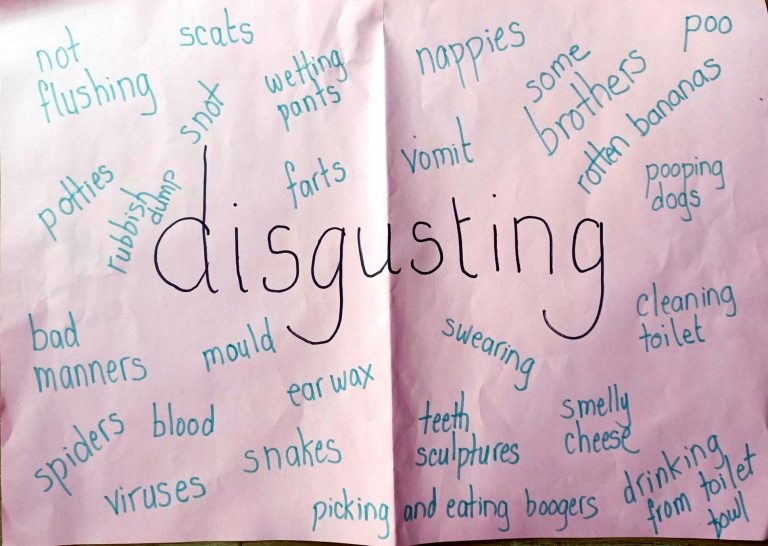 not
flushing
scats
snot
wetting
pants
nappies
some
brothers
poo
rotten bananas
potties
rubbish
dump
farts
vomit
pooping
dogs
disgusting
bad
manners
mould
ear wax
swearing
cleaning
toilet
spiders
blood
snakes
viruses
teeth
sculptures
smelly
cheese
picking and eating boogers
drinking
from toilet
bowl